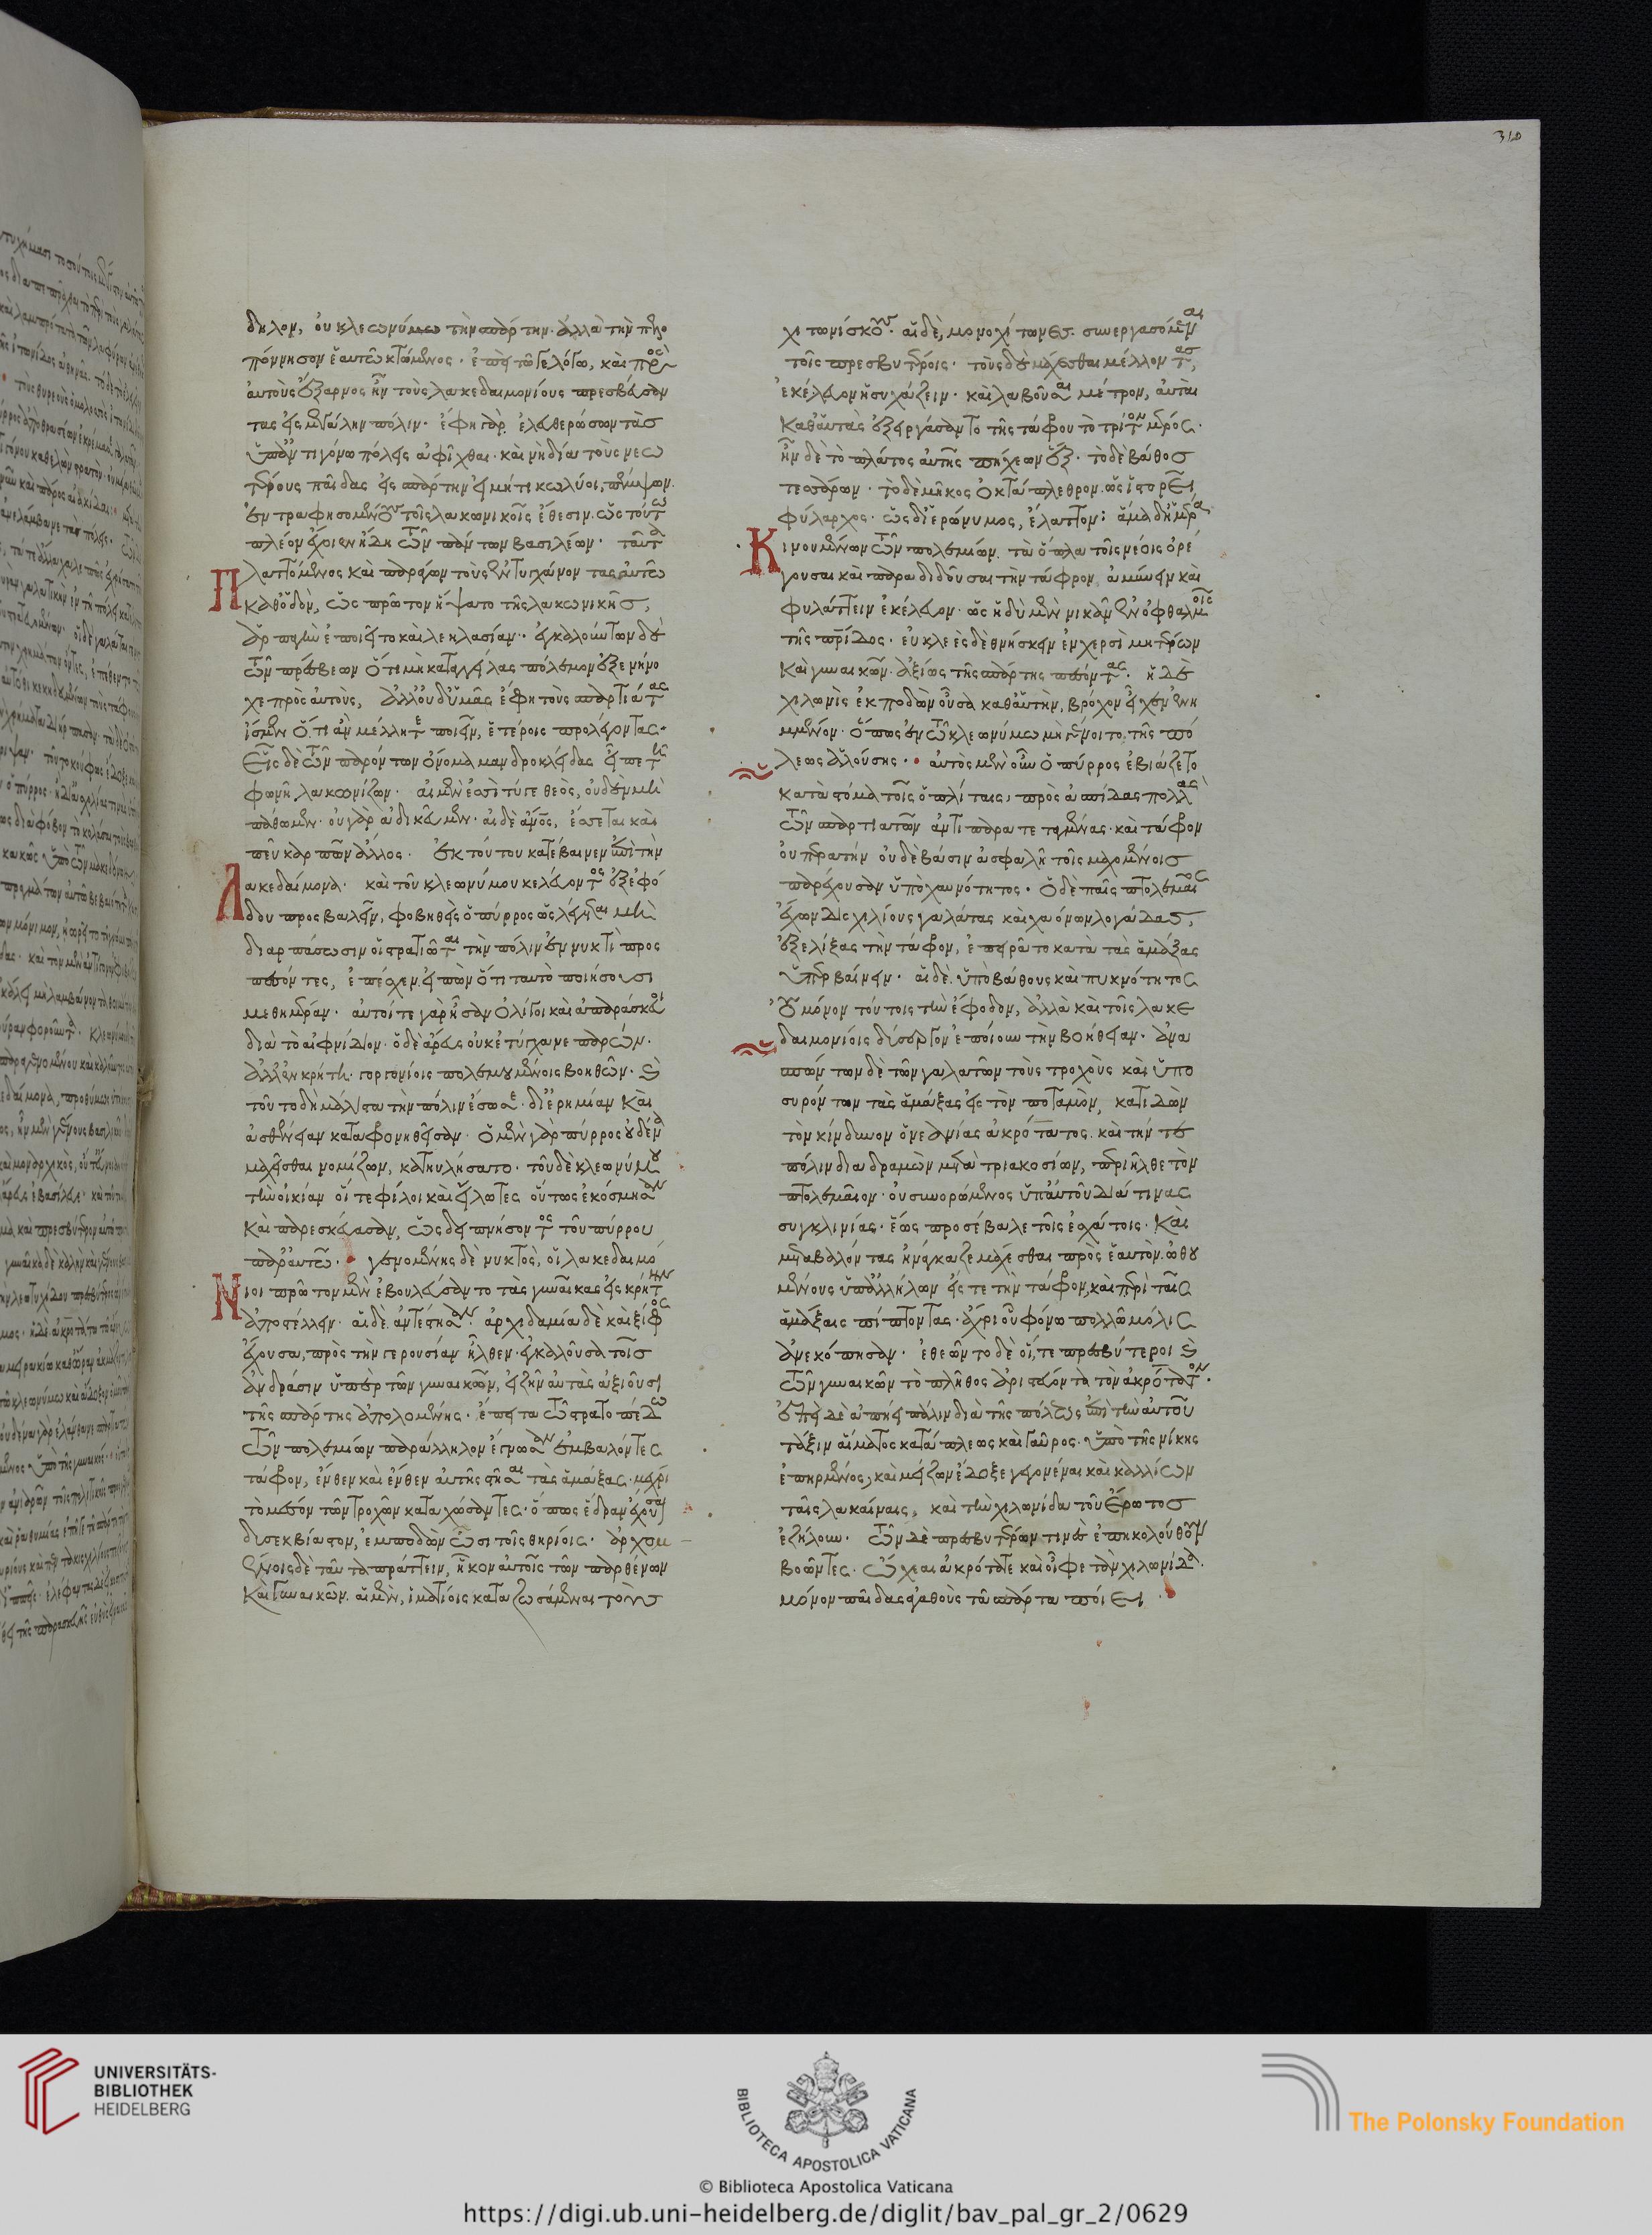 310
δηλον, οὐ κλεωνύμω τὴν σπάρτην· ἀλλὰ τὴν πελο
πόννησον ἑαυτῶ κτώμενος· ἐπεὶ τῶ γε λόγω, καὶ πρὸς
αὐτοὺς ἔξαρνος ἦν τοὺς λακεδαιμονίους πρεσβεύσαν
τας εἰς μεγάλην πόλιν· ἔφη γὰρ ἐλευθερώσων τὰς
ὑπ' ἀντιγόνω πόλεις ἀφῖχθαι· καὶ νὴ δία τοὺς νεω
τέρους παῖδας εἰς σπάρτην εἰ μή τι κωλύοι, πέμψων
ἐντραφησομένους τοῖς λακωνικοῖς ἔθεσιν· ὡς τούτω
πλέον ἔχοιεν ἤδη τῶν πάντων βασιλέων· ταῦτα
Πλαττόμενος καὶ παράγων τοὺς ἐντυγχάνοντας αὐτῶ
καθ' ὁδὸν, ὡς πρῶτον ἥψατο τῆς λακωνικῆς,
ἁρπαγὴν ἐποιεῖτο καὶ λεηλασίαν· ἐγκαλούντων δὲ
τῶν πρέσβεων ὅτι μὴ καταγγείλας πόλεμον ἐξενήνο
χε πρὸς αὐτοὺς, ἀλλ' οὐδ' ὑμᾶς ἔφη τοὺς σπαρτιάτας
ἴσμεν ὅ,τι ἂν μέλλητε ποιεῖν, ἑτέροις προλέγοντας·
Εἷς δὲ τῶν παρόντων ὄνομα μανδροκλείδας εἶπε τῆ
φωνῆ λακωνίζων· αἰ μὲν ἐσσὶ τύγε θεὸς, οὐδὲν μὴ
πάθωμεν· οὐ γὰρ ἀδικεῦμεν· αἰ δὲ ἄνθρωπος, ἔσεται καὶ
τεῦ κάρρων ἄλλος· ἐκ τούτου κατέβαινεν ἐπὶ τὴν
Λακεδαίμονα· καὶ τοῦ κλεωνύμου κελεύοντος ἐξ ἐφό
δου προσβαλεῖν, φοβηθεὶς ὁ πύρρος ὡς λέγεται μὴ
διαρπάσωσιν οἱ στρατιῶται τὴν πόλιν ἐν νυκτὶ προσ
πεσόντες, ἐπέσχεν εἰπὼν ὅτι ταυτὸ ποιήσουσι
μεθ' ἡμέραν· αὐτοί τε γὰρ ἦσαν ὀλίγοι καὶ ἀπαράσκευοι
διὰ τὸ αἰφνίδιον· ὁ δὲ ἀρεὺς οὐκ ἐτύγχανε παρών·
ἀλλ' ἐν κρήτη γορτυνίοις πολεμουμένοις βοηθῶν· καὶ
τοῦτο δὴ μάλιστα τὴν πόλιν ἔσωσε δι' ἐρημίαν καὶ
ἀσθένειαν καταφρονηθεῖσαν· ὁ μὲν γὰρ πύρρος οὐδένα
μαχεῖσθαι νομίζων, κατηυλήσατο· τοῦ δὲ κλεωνύμου
τὴν οἰκίαν οἵ τε φίλοι καὶ εἵλωτες οὕτως ἐκόσμησαν
καὶ παρεσκεύασαν, ὡς δειπνήσοντος τοῦ πύρρου
παρ' αὐτῶ· γενομένης δὲ νυκτὸς, οἱ λακεδαιμό
Νιοι πρῶτον μὲν ἐβουλεύσαντο τὰς γυναῖκας εἰς κρήτην
ἀποστέλλειν· αἱ δὲ ἀντέστησαν· ἀρχιδαμία δὲ καὶ ξίφος
ἔχουσα, πρὸς τὴν γερουσίαν ἦλθεν ἐγκαλοῦσα τοῖς
ἀνδράσιν ὑπὲρ τῶν γυναικῶν, εἰ ζῆν αὐτὰς ἀξιοῦσι
τῆς σπάρτης ἀπολομένης· ἔπειτα τῶ στρατοπέδω
τῶν πολεμίων παράλληλον ἔγνωσαν ἐμβαλόντες
τάφρον, ἔνθεν καὶ ἔνθεν αὐτῆς στῆσαι τὰς ἁμάξας· μέχρι
τὸ μέσον τῶν τροχῶν καταχώσαντες· ὅπως ἕδραν ἔχουσαι
δυσεκβίαστον, ἐμποδὼν ὦσι τοῖς θηρίοις· ἀρχομ
ένοις δὲ ταῦτα πράττειν, ἧκον αὐτοῖς τῶν παρθένων
καὶ γυναικῶν· αἱ μὲν, ἱματίοις καταζωσάμεναι τοὺς
χιτωνίσκους· αἱ δὲ, μονοχίτωνες· συνεργασόμεναι
τοῖς πρεσβυτέροις· τοὺς δὲ μάχεσθαι μέλλοντας,
ἐκέλευον ἡσυχάζειν· καὶ λαβοῦσαι μέτρον, αὐταὶ
καθ' αὑτὰς ἐξειργάσαντο τῆς τάφρου τὸ τρίτον μέρος·
ἦν δὲ τὸ πλάτος αὐτῆς πήχεων ἕξ· τὸ δὲ βάθος
τεσσάρων· τὸ δὲ μῆκος ὀκτάπλεθρον· ὡς ἱστορεῖ
φύλαρχος· ὡς δ' ἱερώνυμος, ἔλαττον· ἅμα δ' ἡμέρα
Κινουμένων τῶν πολεμίων τὰ ὅπλα τοῖς νέοις ὀρέ
γουσαι καὶ παραδιδοῦσαι τὴν τάφρον, ἀμύνειν καὶ
φυλάττειν ἐκέλευον· ὡς ἡδὺ μὲν νικᾶν ἐν ὀφθαλμοῖς
τῆς πατρίδος· εὐκλεὲς δὲ θνήσκειν ἐν χερσὶ μητέρων
καὶ γυναικῶν· ἀξίως τῆς σπάρτης πεσόντας· ἡ δὲ
χιλωνὶς ἐκποδὼν οὖσα καθ' αὑτὴν, βρόχον εἶχεν ἐνη
μμένον· ὅπως ἐν τῶ κλεωνύμω μὴ γένοιτο, τῆς πό
λεως ἁλούσης· αὐτὸς μὲν οὖν ὁ πύρρος ἐβιάζετο
κατὰ στόμα τοῖς ὁπλίταις, πρὸς ἀσπίδας πολλὰς
τῶν σπαρτιατῶν ἀντιπαρατεταγμένας· καὶ τάφρον
οὐ περατὴν οὐδὲ βάσιν ἀσφαλῆ τοῖς μαχομένοις
παρέχουσαν ὑπὸ χαυνότητος· ὁ δὲ παῖς πτολεμαῖος
ἔχων δισχιλίους γαλάτας καὶ χαόνων λογάδας,
ἐξελίξας τὴν τάφρον, ἐπειρᾶτο κατὰ τὰς ἁμάξας
ὑπερβαίνειν· αἱ δὲ ὑπὸ βάθους καὶ πυκνότητος
οὐ μόνον τούτοις τὴν ἔφοδον, ἀλλὰ καὶ τοῖς λακε
δαιμονίοις δύσεργον ἐποίουν τὴν βοήθειαν· ἀνα
σπώντων δὲ τῶν γαλατῶν τοὺς τροχοὺς καὶ ὑπο
συρόντων τὰς ἁμάξας εἰς τὸν ποταμὸν, κατιδὼν
τὸν κίνδυνον ὁ νεανίας ἀκρότατος καὶ τὴν
πόλιν διαδραμὼν μετὰ τριακοσίων, περιῆλθε τὸν
πτολεμαῖον· οὐ συνορώμενος ὑπ' αὐτοῦ διά τινας
συγκλινίας· ἕως προσέβαλε τοῖς ἐσχάτοις· καὶ
μεταβαλόντας ἠνάγκαζε μάχεσθαι πρὸς ἑαυτὸν· ὠθου
μένους ὑπ' ἀλλήλων εἴς τε τὴν τάφρον, καὶ περὶ ταῖς
ἁμάξαις πίπτοντας· ἄχρι οὗ φόνω πολλῶ μόλις
ἀνεκόπησαν· ἐθεῶντο δὲ οἵ,τε πρεσβύτεροι καὶ
τῶν γυναικῶν τὸ πλῆθος ἀριστεύοντα τὸν ἀκρότατον·
ἐπεὶ δὲ ἀπῄει πάλιν διὰ τῆς πόλεως ἐπὶ τὴν αὑτοῦ
τάξιν αἵματος κατάπλεως καὶ γαῦρος· ὑπὸ τῆς νίκης
ἐπηρμένος, καὶ μείζων ἔδοξε γεγονέναι καὶ καλλίων
ταῖς λακαίναις, καὶ τὴν χιλωνίδα τοῦ ἔρωτος
ἐζήλουν· τῶν δὲ πρεσβυτέρων τινὲς ἐπηκολούθουν
βοῶντες· οἴχεαι ἀκρότατε καὶ οἶφε τὰν χιλωνίδα·
μόνον παῖδας ἀγαθοὺς τᾶ σπάρτα ποίει
UNIVERSITÄTS-
BIBLIOTHEK
HEIDELBERG
BIBLIOTECA APOSTOLICA VATICANA
The Polonsky Foundation
© Biblioteca Apostolica Vaticana
https://digi.ub.uni-heidelberg.de/diglit/bav_pal_gr_2/0629